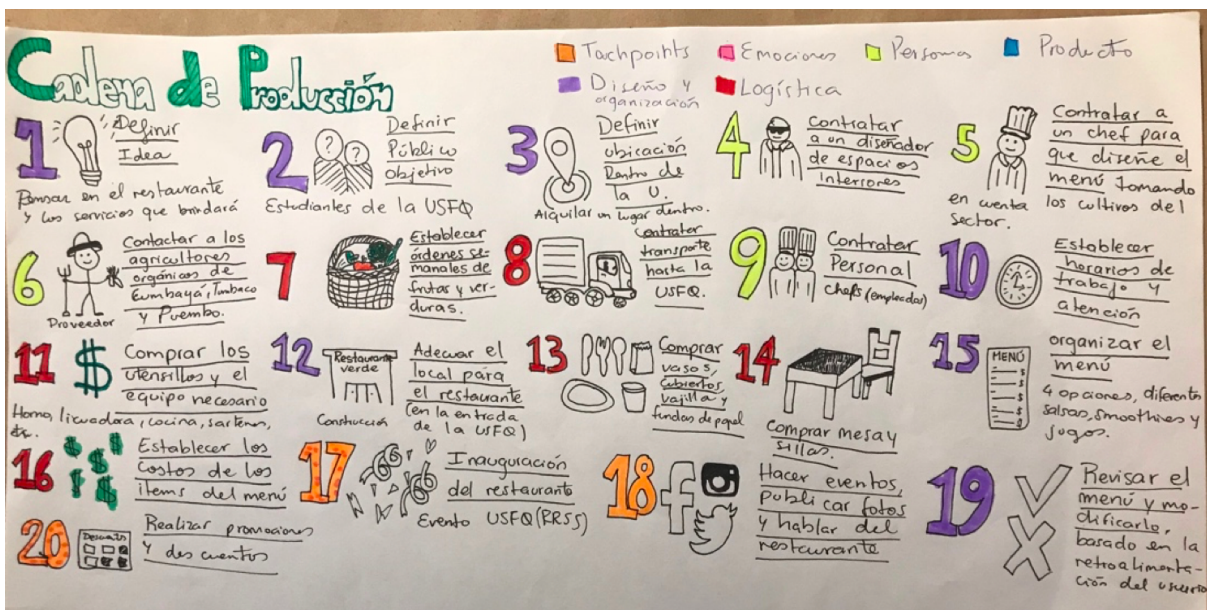 Cadena de Producción
Tachpoints
Emociones
Personas
Producto
Diseño y
organización
Logística
1
Definir
Idea
Pensar en el restaurante
y los servicios que brindará
2
Definir
Público
objetivo
Estudiantes de la USFQ
3
Definir
ubicación
Dentro de
la U.
Alquilar un lugar dentro.
4
Contratar
a un diseñador
de espacios
interiores
5
Contratar a
un chef para
que diseñe el
menú tomando
los cultivos del
en cuenta
sector.
6
Contactar a los
agricultores
orgánicos de
Cumbayá, Tumbaco
y Puembo.
Proveedor
7
Establecer
órdenes se-
manales de
frutas y ver-
duras.
8
Contratar
transporte
hasta la
USFQ.
9
Contratar
Personal
chefs (empleados)
10
Establecer
horarios de
trabajo y
atención
11
$
Comprar los
utensillos y el
equipo necesario
Horno, licuadora, cocina, sartenes,
etc.
12
Restaurante
verde
Construcción
Adecuar el
local para
el restaurante
(en la entrada
de la USFQ)
13
Comprar
vasos,
cubiertos,
vajilla y
fundas de papel
14
Comprar mesa y
sillas.
15
MENÚ
organizar el
menú
4 opciones, diferentes
salsas, smoothies y
jugos.
16
$ $ $ $ $
Establecer los
costos de los
items del menú
17
Inauguración
del restaurante
Evento USFQ (RRSS)
18
Hacer eventos,
publicar fotos
y hablar del
restaurante
19
Revisar el
menú y mo-
dificarlo,
basado en la
retroalimenta-
ción del usuario
20
Realizar promociones
y descuentos